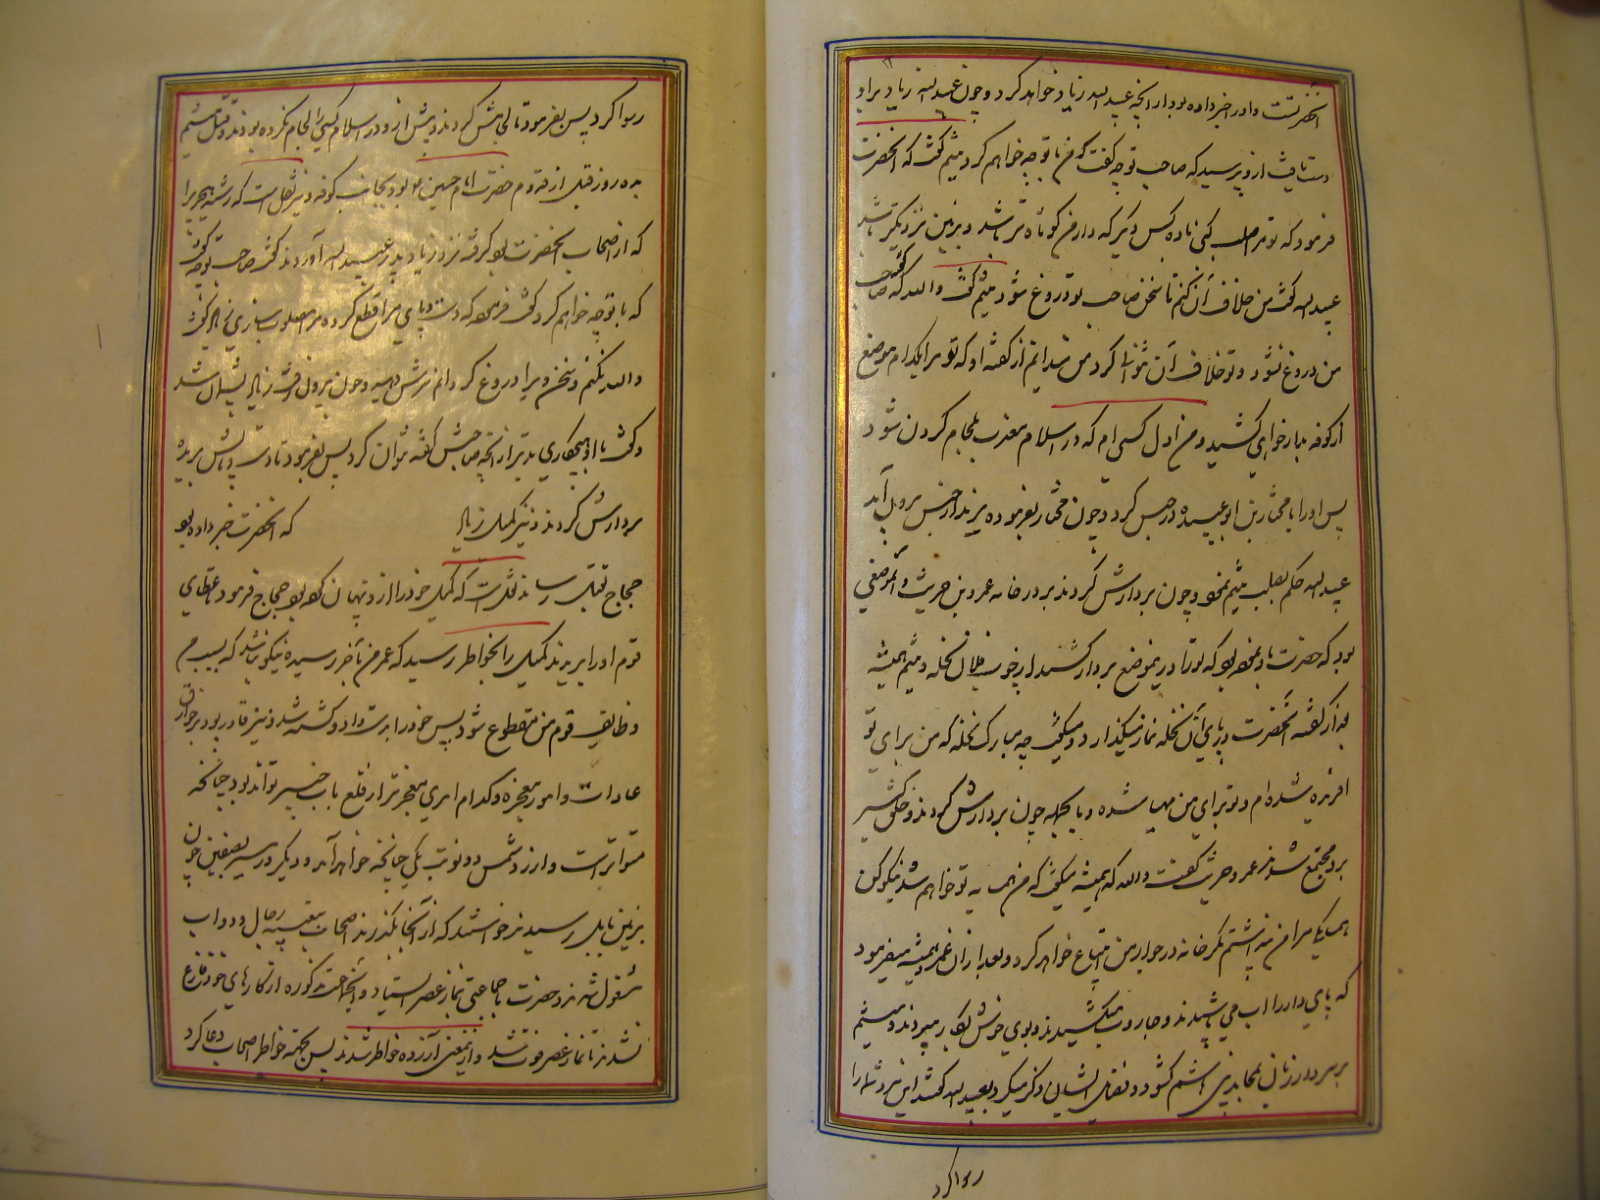 آنحضرتست و او را خبر داده بود بدار آنچه عبید الله زیاد خواهد کرد و چون عبید الله زیاد بر او
دست یافت از و پرسید که صاحب تو چه گفت که من با تو چه خواهم کرد میثم گفت که آنحضرت
فرمود که تو مرا صلب کنی با ده کس دیگر که دار من کوتاه تر باشد و بزمین نزدیکتر باشد
عبید الله گفت من خلاف آن کنم تا سخن صاحب تو دروغ شود میثم گفت والله که گفته صاحب
من دروغ نشود و تو خلاف آن نتوانی کرد من میدانم از گفته او که تو مرا بکدام موضع
از کوفه بدار خواهی کشید و من اول کسی ام که در اسلام معذب بلجام کردن شود
پس او را با مختار بن ابو عبیده در حبس کرد و چون مختار بفرموده یزید از حبس برون آمد
عبید الله حکم بصلب میثم نمود و چون بردارش کردند بر در خانه عمرو بن حریث و آن موضعی
بود که حضرت باو نموده بود که تو را درین موضع بردار کشند از چوب فلان نخله و میثم همیشه
بعد از گفته آنحضرت در پای آن نخله نماز میگذارد و میگفت چه مبارک نخله که من برای تو
افریده شده ام و تو برای من مهیا شده و بالجمله چون بردارش کردند و خلق کثیر
برو مجتمع شدند عمرو حریث گفت والله که همیشه میگفت که من همسایه تو خواهم شد نیکو کن
همسایگی مرا من پنداشتم مگر خانه در جوار من ابتیاع خواهد کرد و بعد از آن عمرو همیشه میفرمود
که پای دار را اب می پاشیدند و جاروب میکشیدند و بوی خوش بکار میبردند و میثم
بر سر دار زبان بمحامد بنی هاشم گشود و فضایل ایشان ذکر میکرد بعبید الله گفتند این مرد شما را
رسوا کرد
رسوا کرد پس بفرمود تا لجامش کردند و پیش از و در اسلام کسی را لجام نکرده بودند و قتل میثم
بده روز قبل از قدوم حضرت امام حسین بود بجانب کوفه و نیز نقل است که رشید هجری را
که از اصحاب آنحضرت بود گرفته نزد زیاد پدر عبید الله آوردند گفت صاحب تو چه گفت
که با تو چه خواهم کرد گفت فرموده که دست و پای مرا قطع کرده مرا مصلوب سازی زیاد گفت
والله نکنم و سخن ویرا دروغ گردانم سرش دهید و چون بیرون رفت زیاد پشیمان شد
و گفت با او هیچ کاری بدتر از آنچه صاحبش گفته نتوان کرد پس بفرمود تا دست و پاش بریده
بردارش کردند و نیز کمیل زیاد که آنحضرت خبر داده بود
حجاج بقتل رساند نقلست که کمیل خود را از و پنهان کرده بود حجاج فرمود عطای
قوم او را بریدند کمیل را بخاطر رسید که عمر من بآخر رسیده نیکو نباشد که بسبب من
وظایف قوم من مقطوع شود پس خود را بدست داد و کشته شد و نیز قادر بود بر خوارق
عادات و امور معجزه و کدام امری معجزتر از قلع باب خیبر تواند بود چنانچه
متواترست و از رد شمس دو نوبت یکی چنانچه خواهد آمد و دیگر در سیر بصفین چون
بزمین بابل رسیدند خواستند که از آنجا بگذرند اصحاب بتعبیه رحال و دواب
مشغول شدند و حضرت با جماعتی بنماز عصر ایستاد و آنجماعت مذکوره از کارهای خود فارغ
نشدند تا نماز عصر فوت شد و ازینمعنی آزرده خاطر شدند پس بجهته خاطر اصحاب دعا کرد